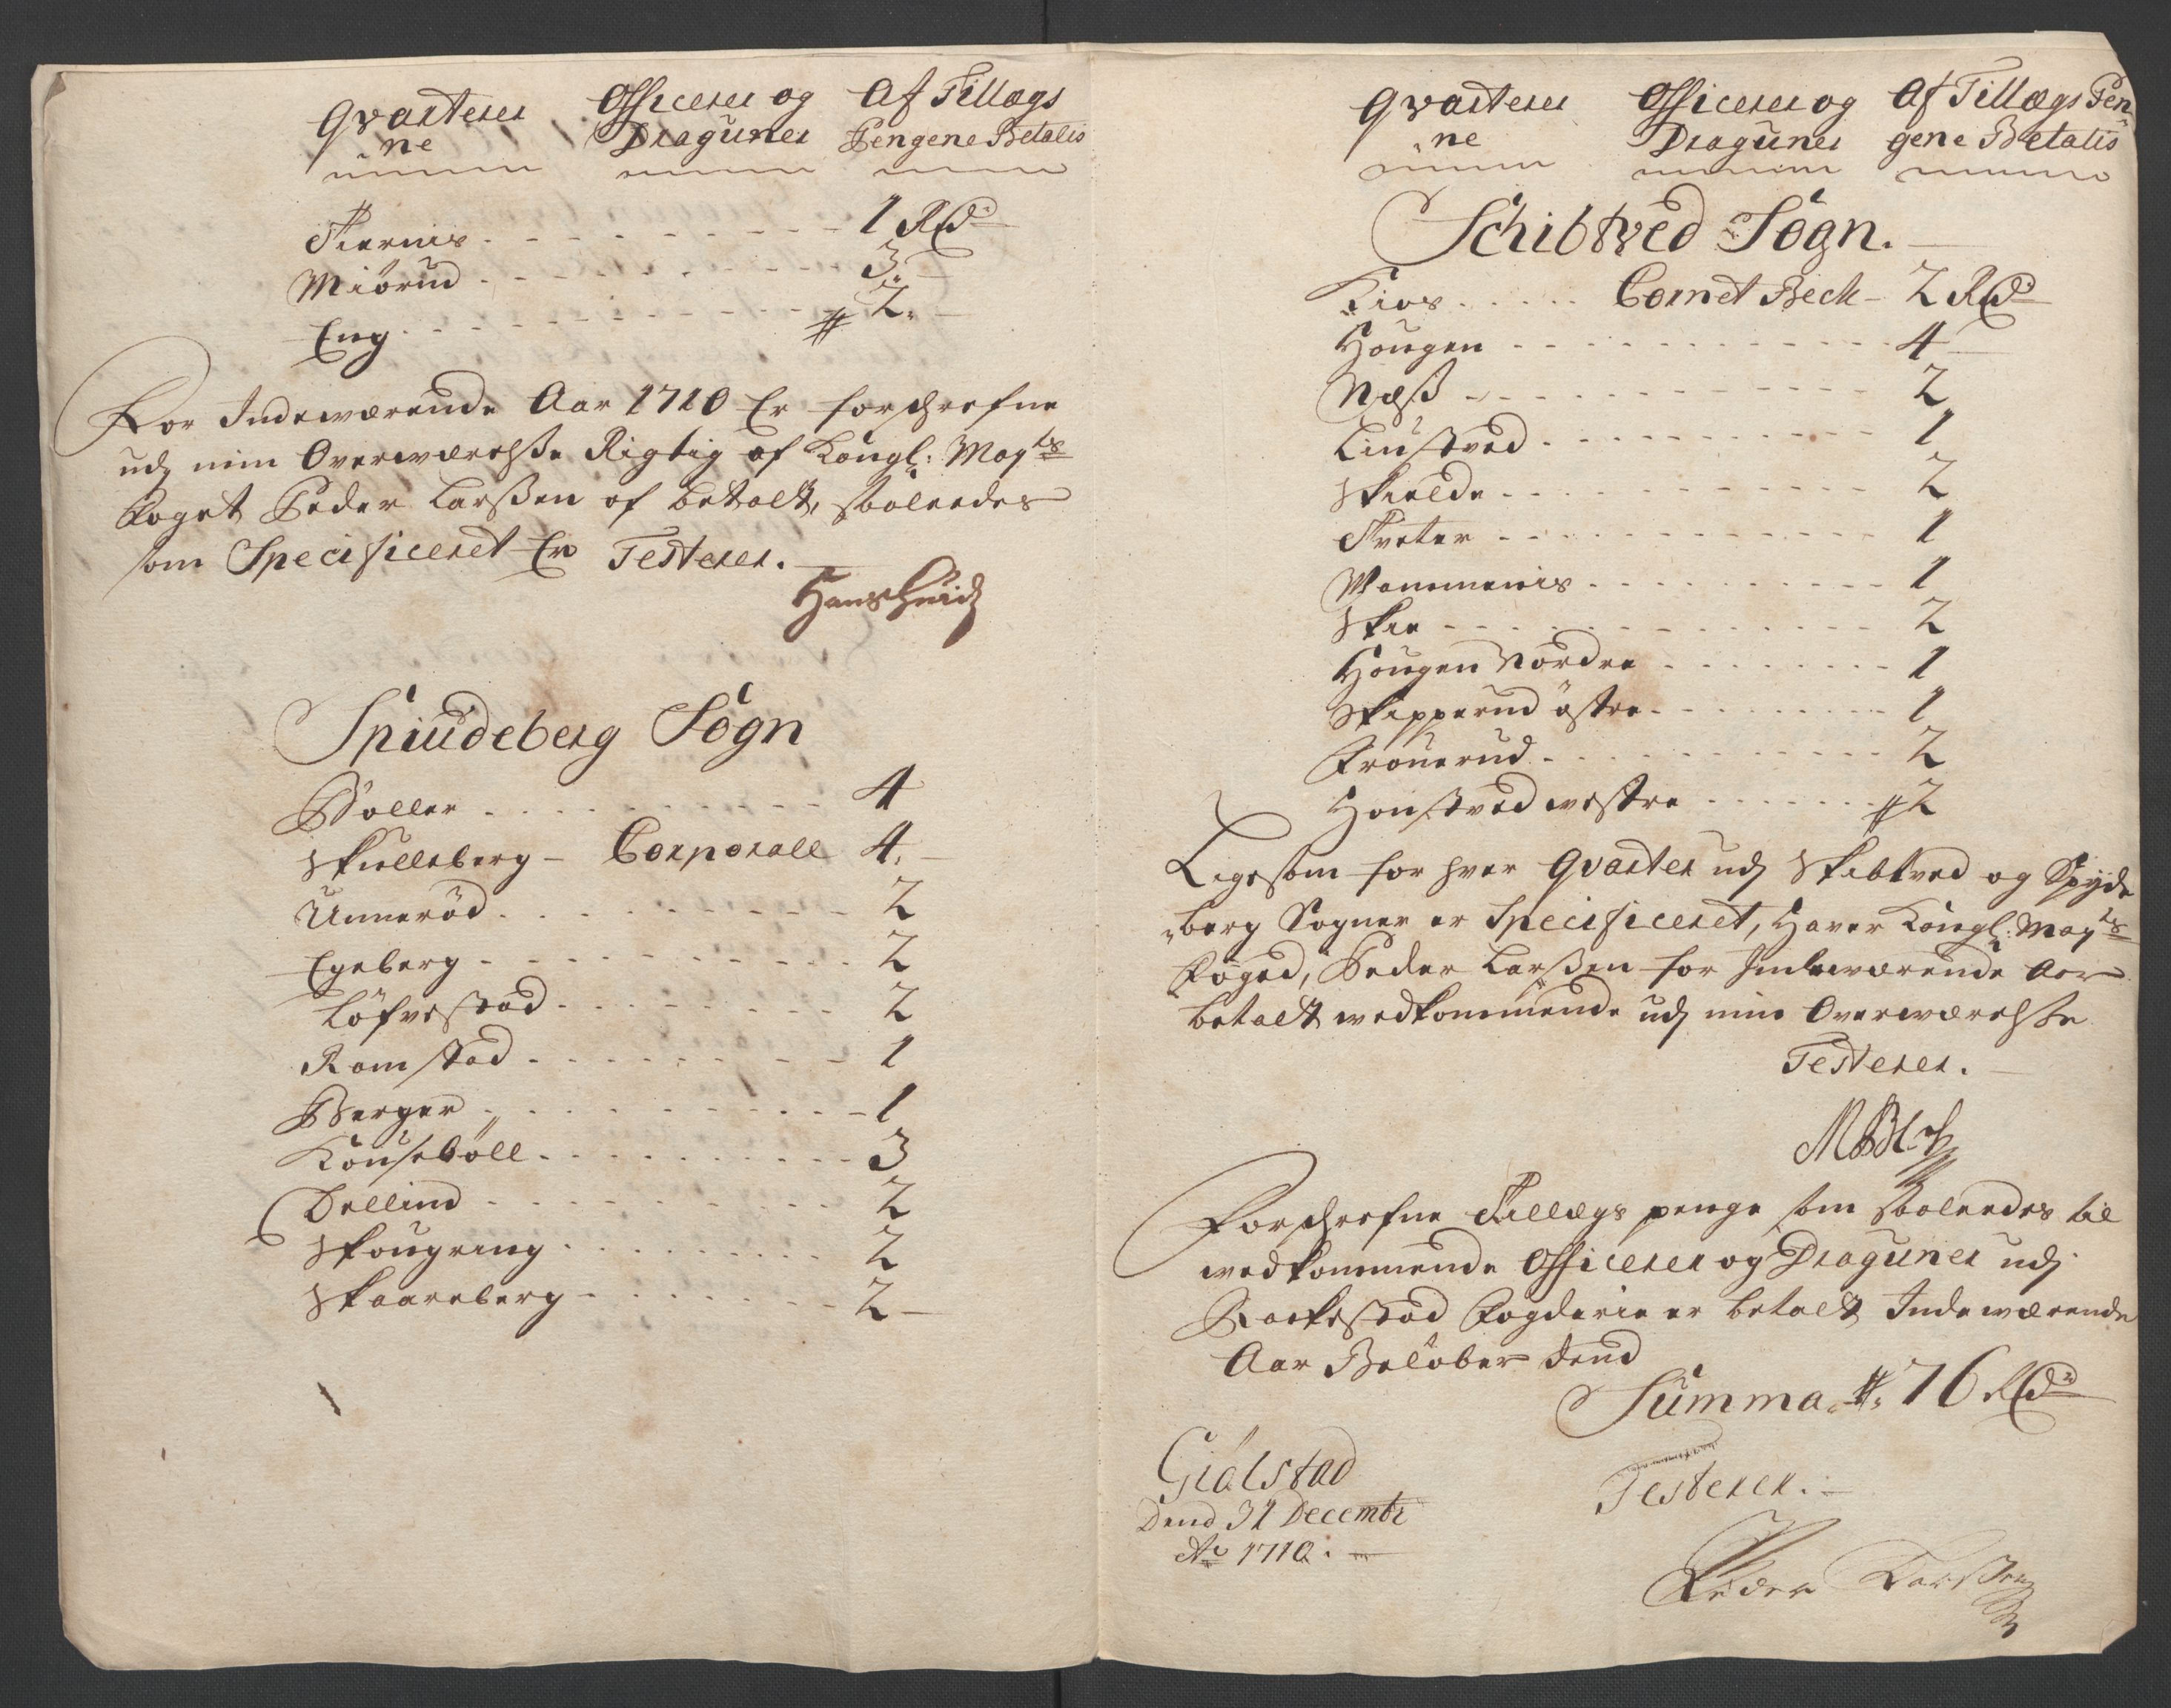 Qvarterer Officerer og Af Tillægs
ne Draguner Pengene Betalis
Tiernis 1 Rd
Miørud 3
Eng 2
For Indeværende Aar 1710 Er forschrefne
udj min Overværelsse Rigtig af Kongl: Mayts
Foget Peder Larssen af betalt, saaleedes
som Specificeret Er Testerer.
Hans
Spiudeberg Sogn
Boller 4
Skulleberg Corporall 4
Unnerød 2
Egeberg 2
Løfvestad 2
Ramstad 1
Berger 1
Kousebøll 3
Dellind 2
Skougeng 2
Skaareberg 2
Qvarterer Officerer og Af Tillægs Pen
ne Draguner gene Betalis
Schibtved Sogn.
Kios Cornet Bech 2 Rd
Hougen 4
Næss 2
Liustved 1
Skielde 2
Tveter 1
Mammenis 1
Skie 2
Hougen Nordre 1
Skipperud østre 1
Frouerud 2
Houstved westre 2
Ligesom for hver Qvarter udj Skibtved og Spyde
berg Sogner er Specificeret, Haver Kongl: Mayts
Foged, Peder Larssen for Indeværende Aar
betalt wedkommende udj min Overværelsse
Testerer.
Forschrefne Tillægs penge som saaleedes til
wedkommende Officerer og Draguner udj
Rackestad Fogderie er betalt Indeværende
Aar Beløber dend
Summa 76 Rd
Giølstad
Dend 31 Decembr
Ao 1710
Testerer.
Peder Larssen